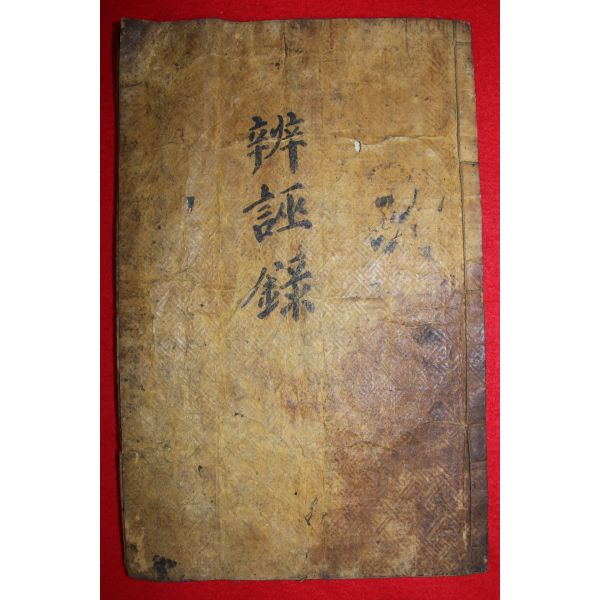 辨誣錄